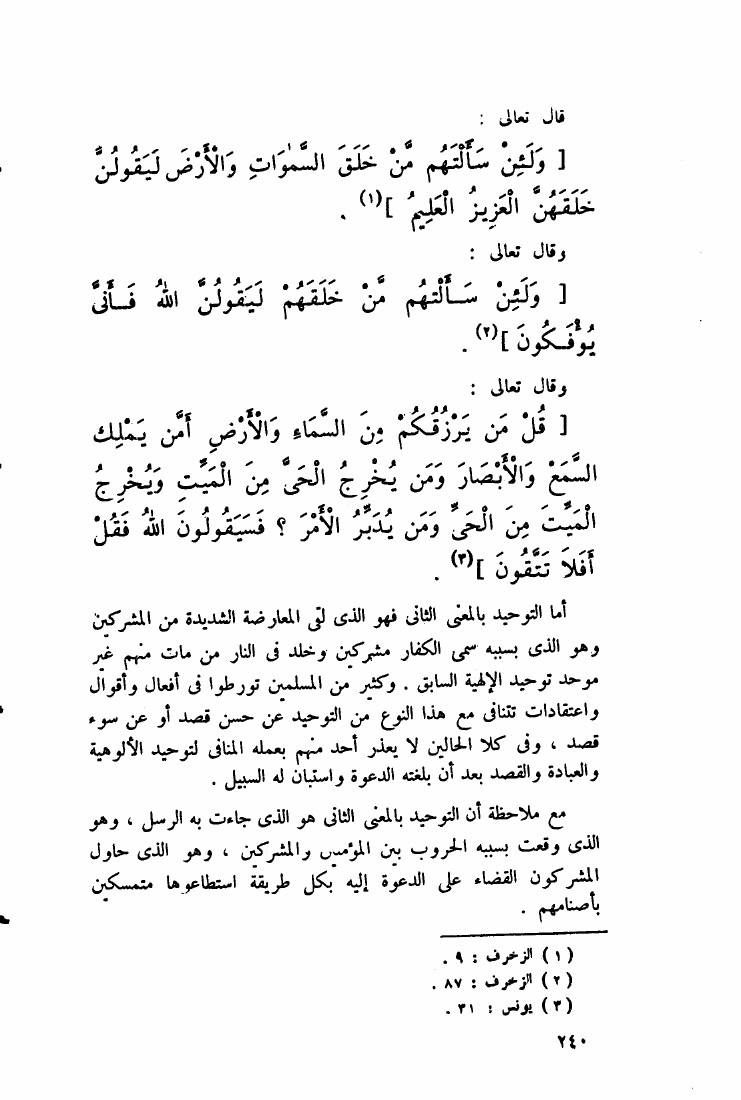 قال تعالى :
[ وَلَئِنْ سَأَلْتَهُم مَّنْ خَلَقَ السَّمٰوَاتِ وَالْأَرْضَ لَيَقُولُنَّ
خَلَقَهُنَّ الْعَزِيزُ الْعَلِيمُ ](١) .
وقال تعالى :
[ وَلَئِنْ سَــأَلْتَهُم مَّنْ خَلَقَهُمْ لَيَقُولُنَّ اللهُ فَــأَنَّىٰ
يُؤْفَـكُونَ ](٢) .
وقال تعالى :
[ قُلْ مَن يَرْزُقُكُمْ مِنَ السَّمَاءِ وَالْأَرْضِ أَمَّن يَمْلِك
السَّمْعَ وَالْأَبْصَارَ وَمَن يُخْرِجُ الْحَىَّ مِنَ الْمَيِّتِ وَيُخْرِجُ
الْمَيِّتَ مِنَ الْحَىِّ وَمَن يُدَبِّرُ الْأَمْرَ ؟ فَسَيَقُولُونَ اللهُ فَقُلْ
أَفَلَا تَتَّقُونَ ](٣) .
أما التوحيد بالمعنى الثانى فهو الذى لقى المعارضة الشديدة من المشركين
وهو الذى بسببه سمى الكفار مشركين وخلد فى النار من مات منهم غير
موحد توحيد الإلهية السابق . وكثير من المسلمين تورطوا فى أفعال وأقوال
واعتقادات تتنافى مع هذا النوع من التوحيد عن حسن قصد أو عن سوء
قصد ، وفى كلا الحالين لا يعذر أحد منهم بعمله المنافى لتوحيد الألوهية
والعبادة والقصد بعد أن بلغته الدعوة واستبان له السبيل .
مع ملاحظة أن التوحيد بالمعنى الثانى هو الذى جاءت به الرسل ، وهو
الذى وقعت بسببه الحروب بين المؤمنين والمشركين ، وهو الذى حاول
المشركون القضاء على الدعوة إليه بكل طريقة استطاعوها متمسكين
بأصنامهم .
(١) الزخرف : ٩ .
(٢) الزخرف : ٨٧ .
(٣) يونس : ٣١ .
٢٤٠